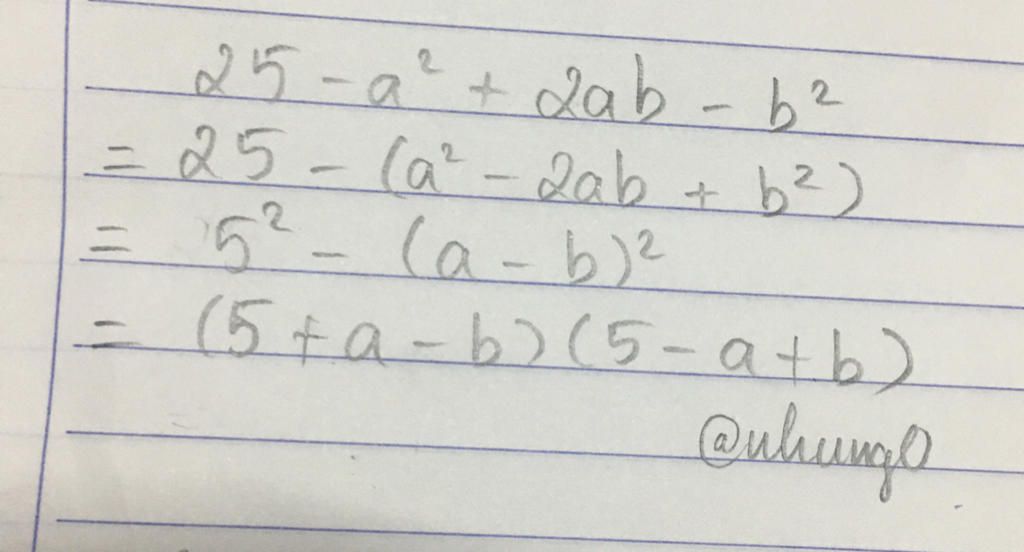 25 - a² + 2ab - b²
= 25 - (a² - 2ab + b²)
= 5² - (a - b)²
= (5 + a - b)(5 - a + b)
@uhung0